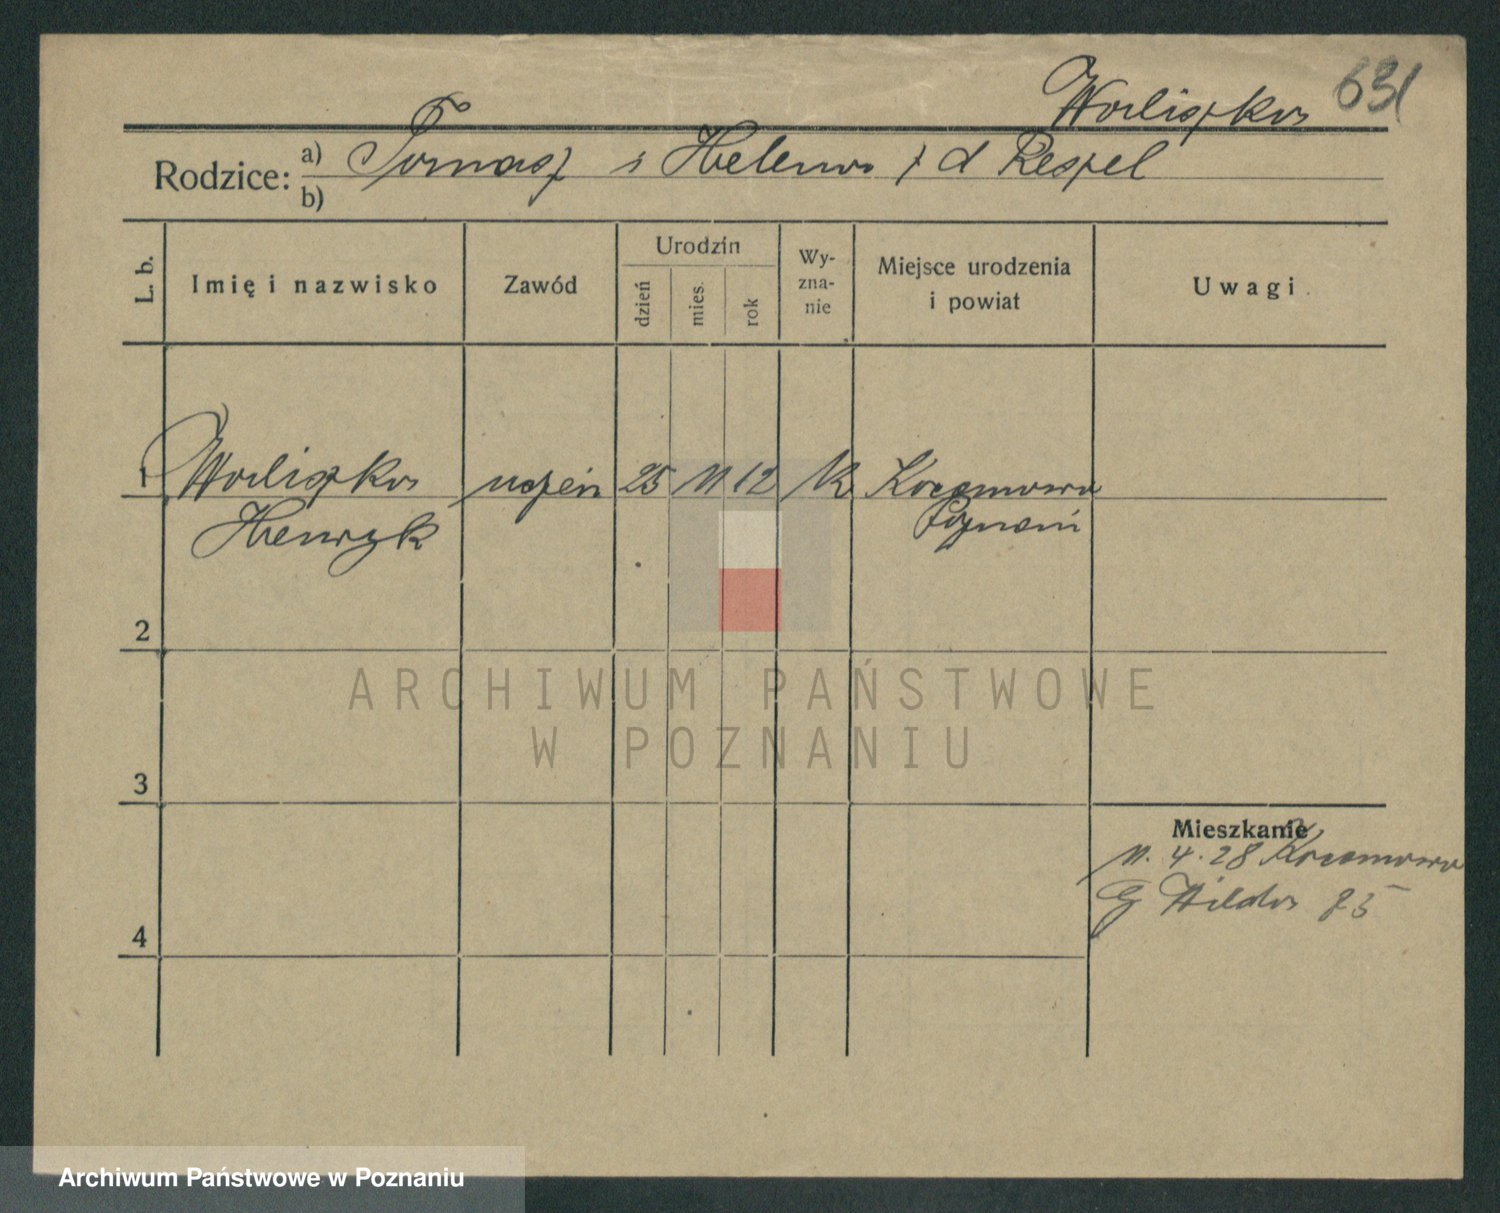 Woliszka 631
Rodzice: a) Tomasz i Helena z d
b)
L. b.
Imię i nazwisko
Zawód
Urodzin
dzień
mies.
rok
Wy-
zna-
nie
Miejsce urodzenia
i powiat
Uwagi
1 uczeń 25 11 12 k
Henryk Poznań
2
3
4
Mieszkanie
11. 4. 28
G Wilda 85
ARCHIWUM PAŃSTWOWE
W POZNANIU
Archiwum Państwowe w Poznaniu